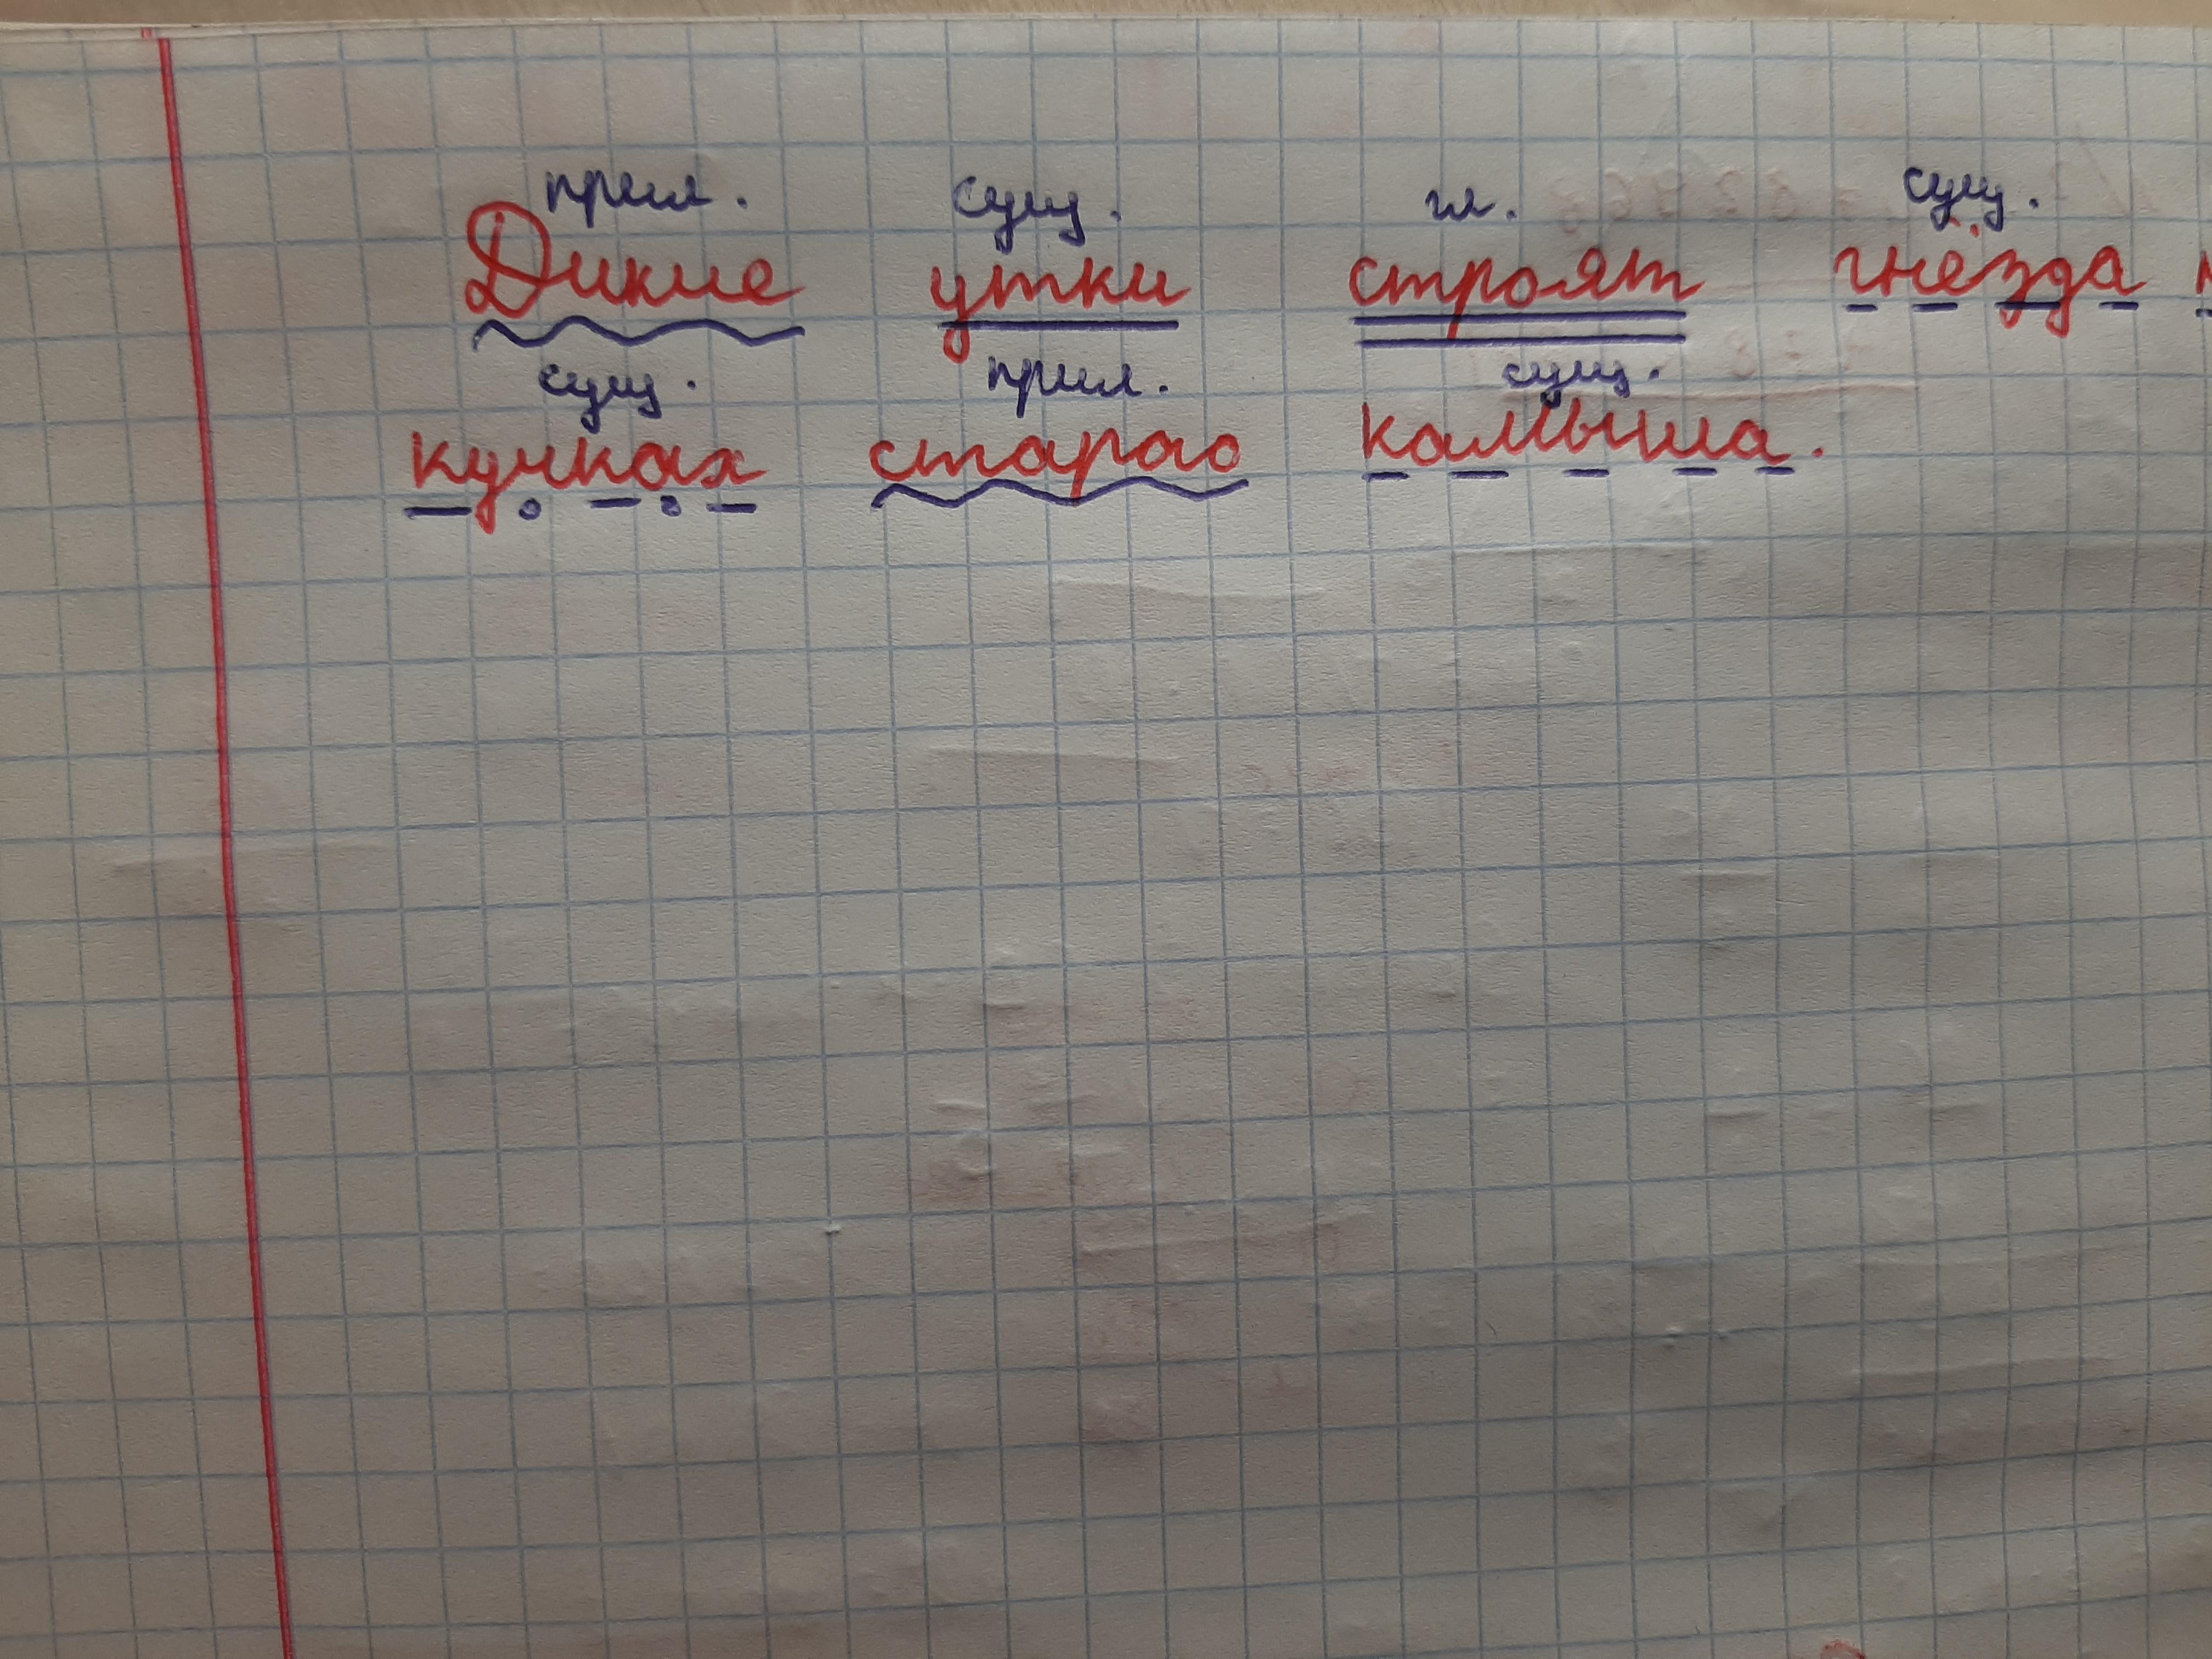 прил. сущ. гл. сущ.
Дикие утки строят гнёзда
сущ. прил. сущ.
кучках старао камыша.